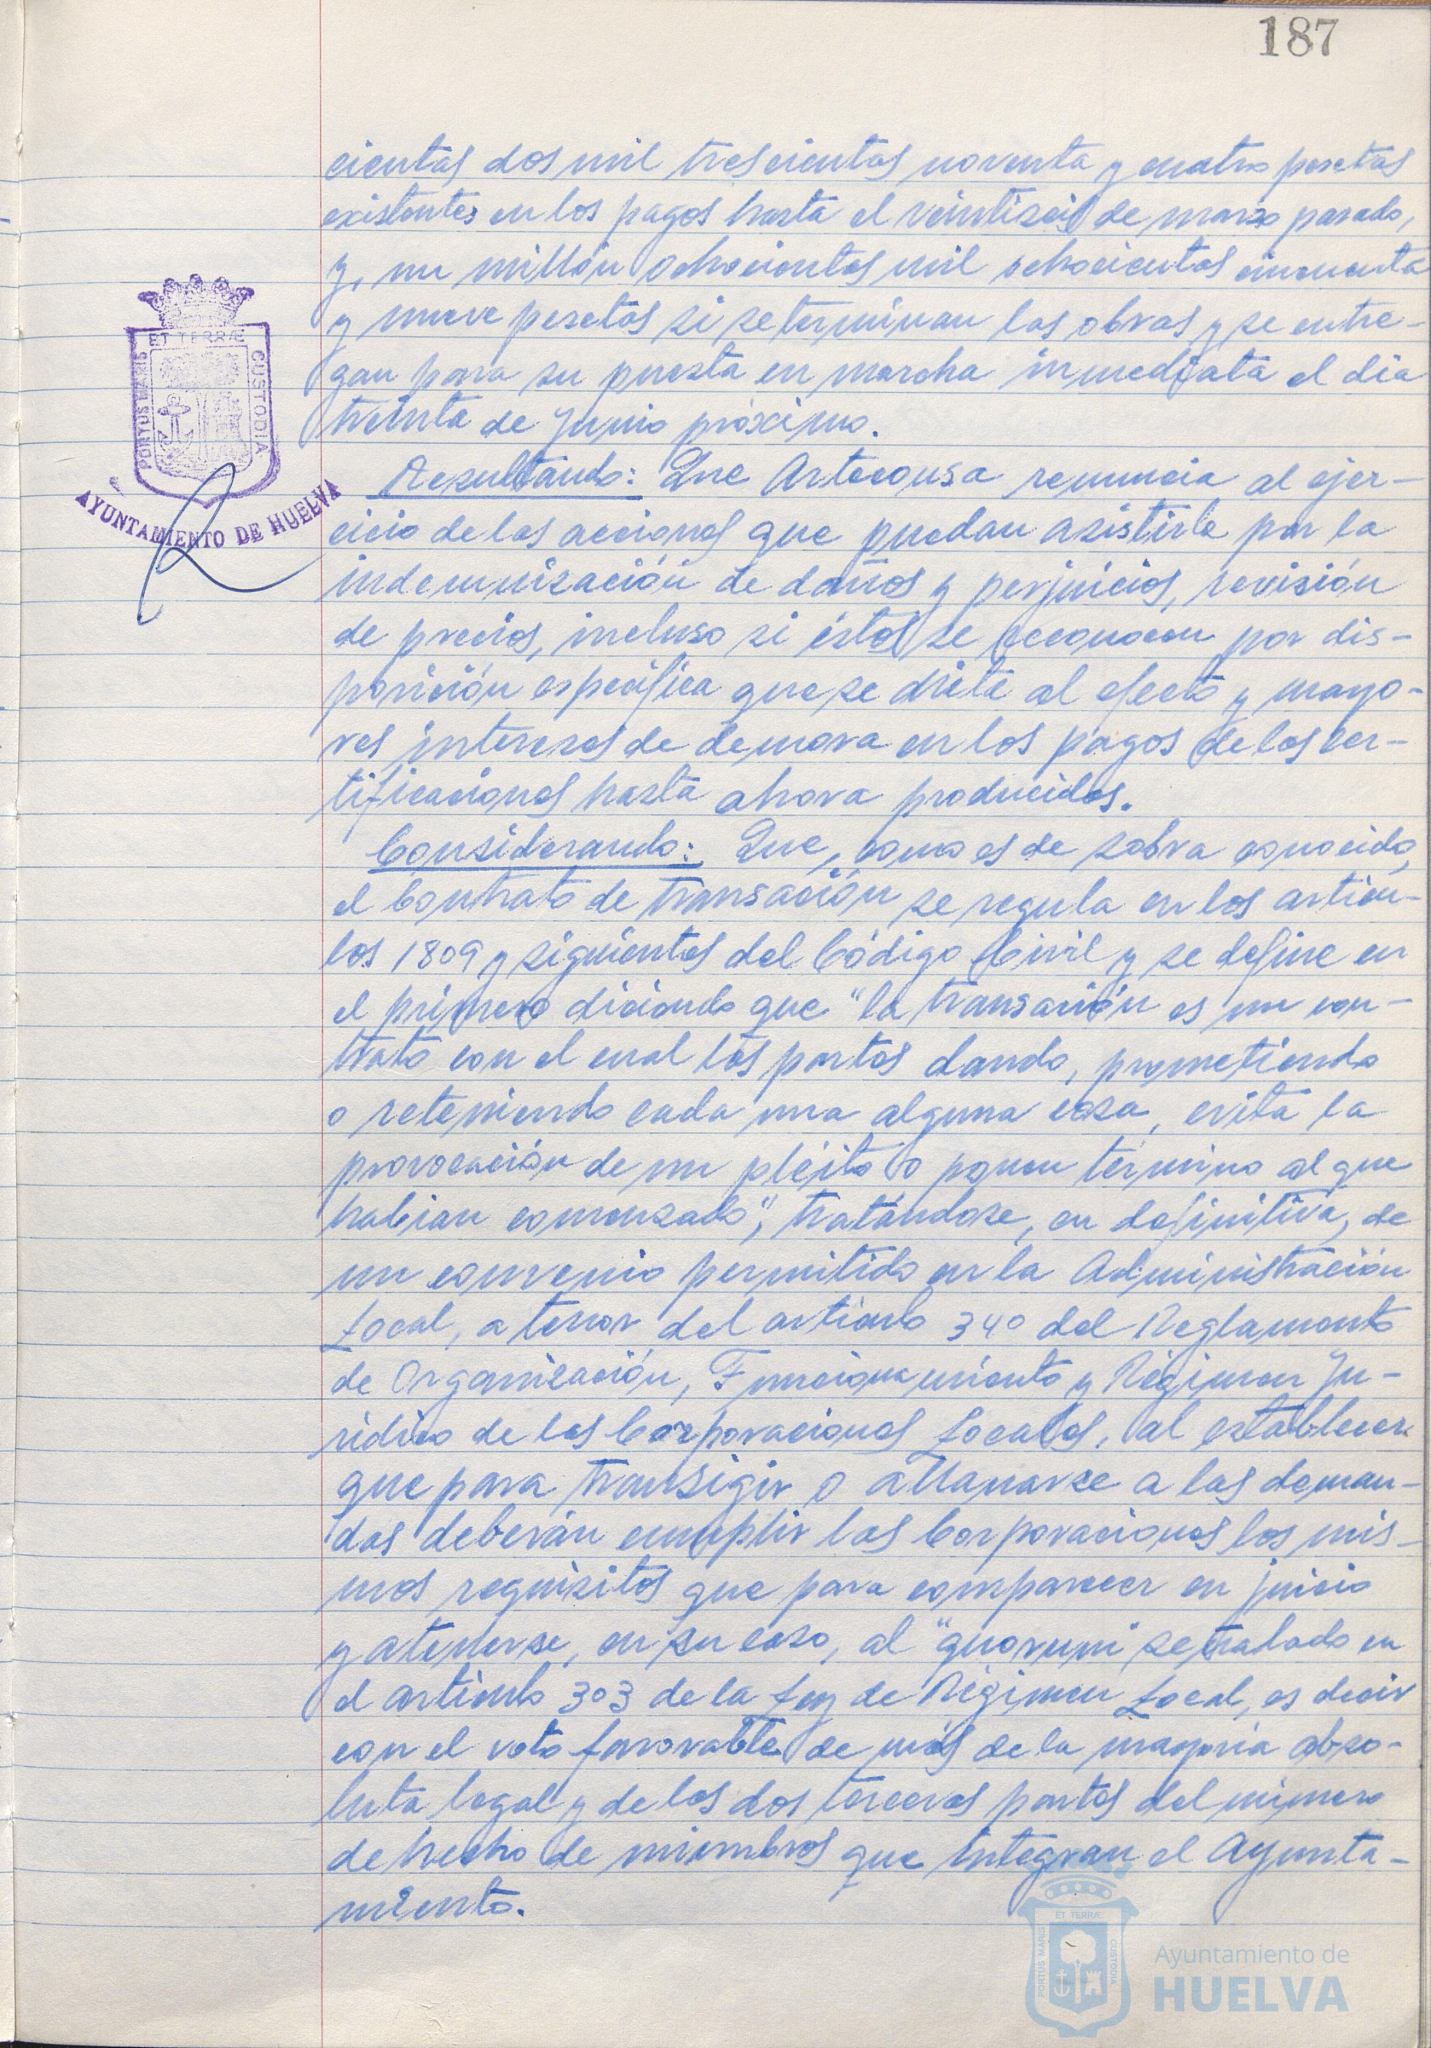 187
cientas dos mil trescientas noventa y cuatro pesetas
existentes en los pagos hasta el veintiseis de marzo pasado,
y, un millón ochocientas mil ochocientas cincuenta
y nueve pesetas si se terminan las obras y se entre-
gan para su puesta en marcha inmediata el día
treinta de Junio próximo.
Resultando: Que Artecousa renuncia al ejer-
cicio de las acciones que puedan asistirle por la
indemnización de daños y perjuicios, revisión
de precios, incluso si éstos se reconocen por dis-
posición específica que se dicte al efecto y mayo-
res intereses de demora en los pagos de las cer-
tificaciones hasta ahora producidas.
Considerando: Que, como es de sobra conocido,
el Contrato de transación se regula en los artícu-
los 1809 y siguientes del Código Civil y se define en
el primero diciendo que "la transación es un con-
trato con el cual las partes dando, prometiendo
o reteniendo cada una alguna cosa, evita la
provocación de un pleito o ponen término al que
habían comenzado", tratándose, en definitiva, de
un convenio permitido en la Administración
Local, a tenor del artículo 340 del Reglamento
de Organización, Funcionamiento y Régimen Ju-
rídico de las Corporaciones Locales, al establecer
que para transigir o allanarse a las deman-
das deberán cumplir las Corporaciones los mis-
mos requisitos que para comparecer en juicio
y atenerse, en su caso, al "quorum" señalado en
el artículo 303 de la Ley de Régimen Local, es decir
con el voto favorable de más de la mayoría abso-
luta legal y de las dos terceras partes del número
de hecho de miembros que integran el Ayunta-
miento.
ET TERRÆ
PORTUS MARIS
CUSTODIA
AYUNTAMIENTO DE HUELVA
ET TERRÆ
PORTUS MARIS
CUSTODIA
Ayuntamiento de
HUELVA